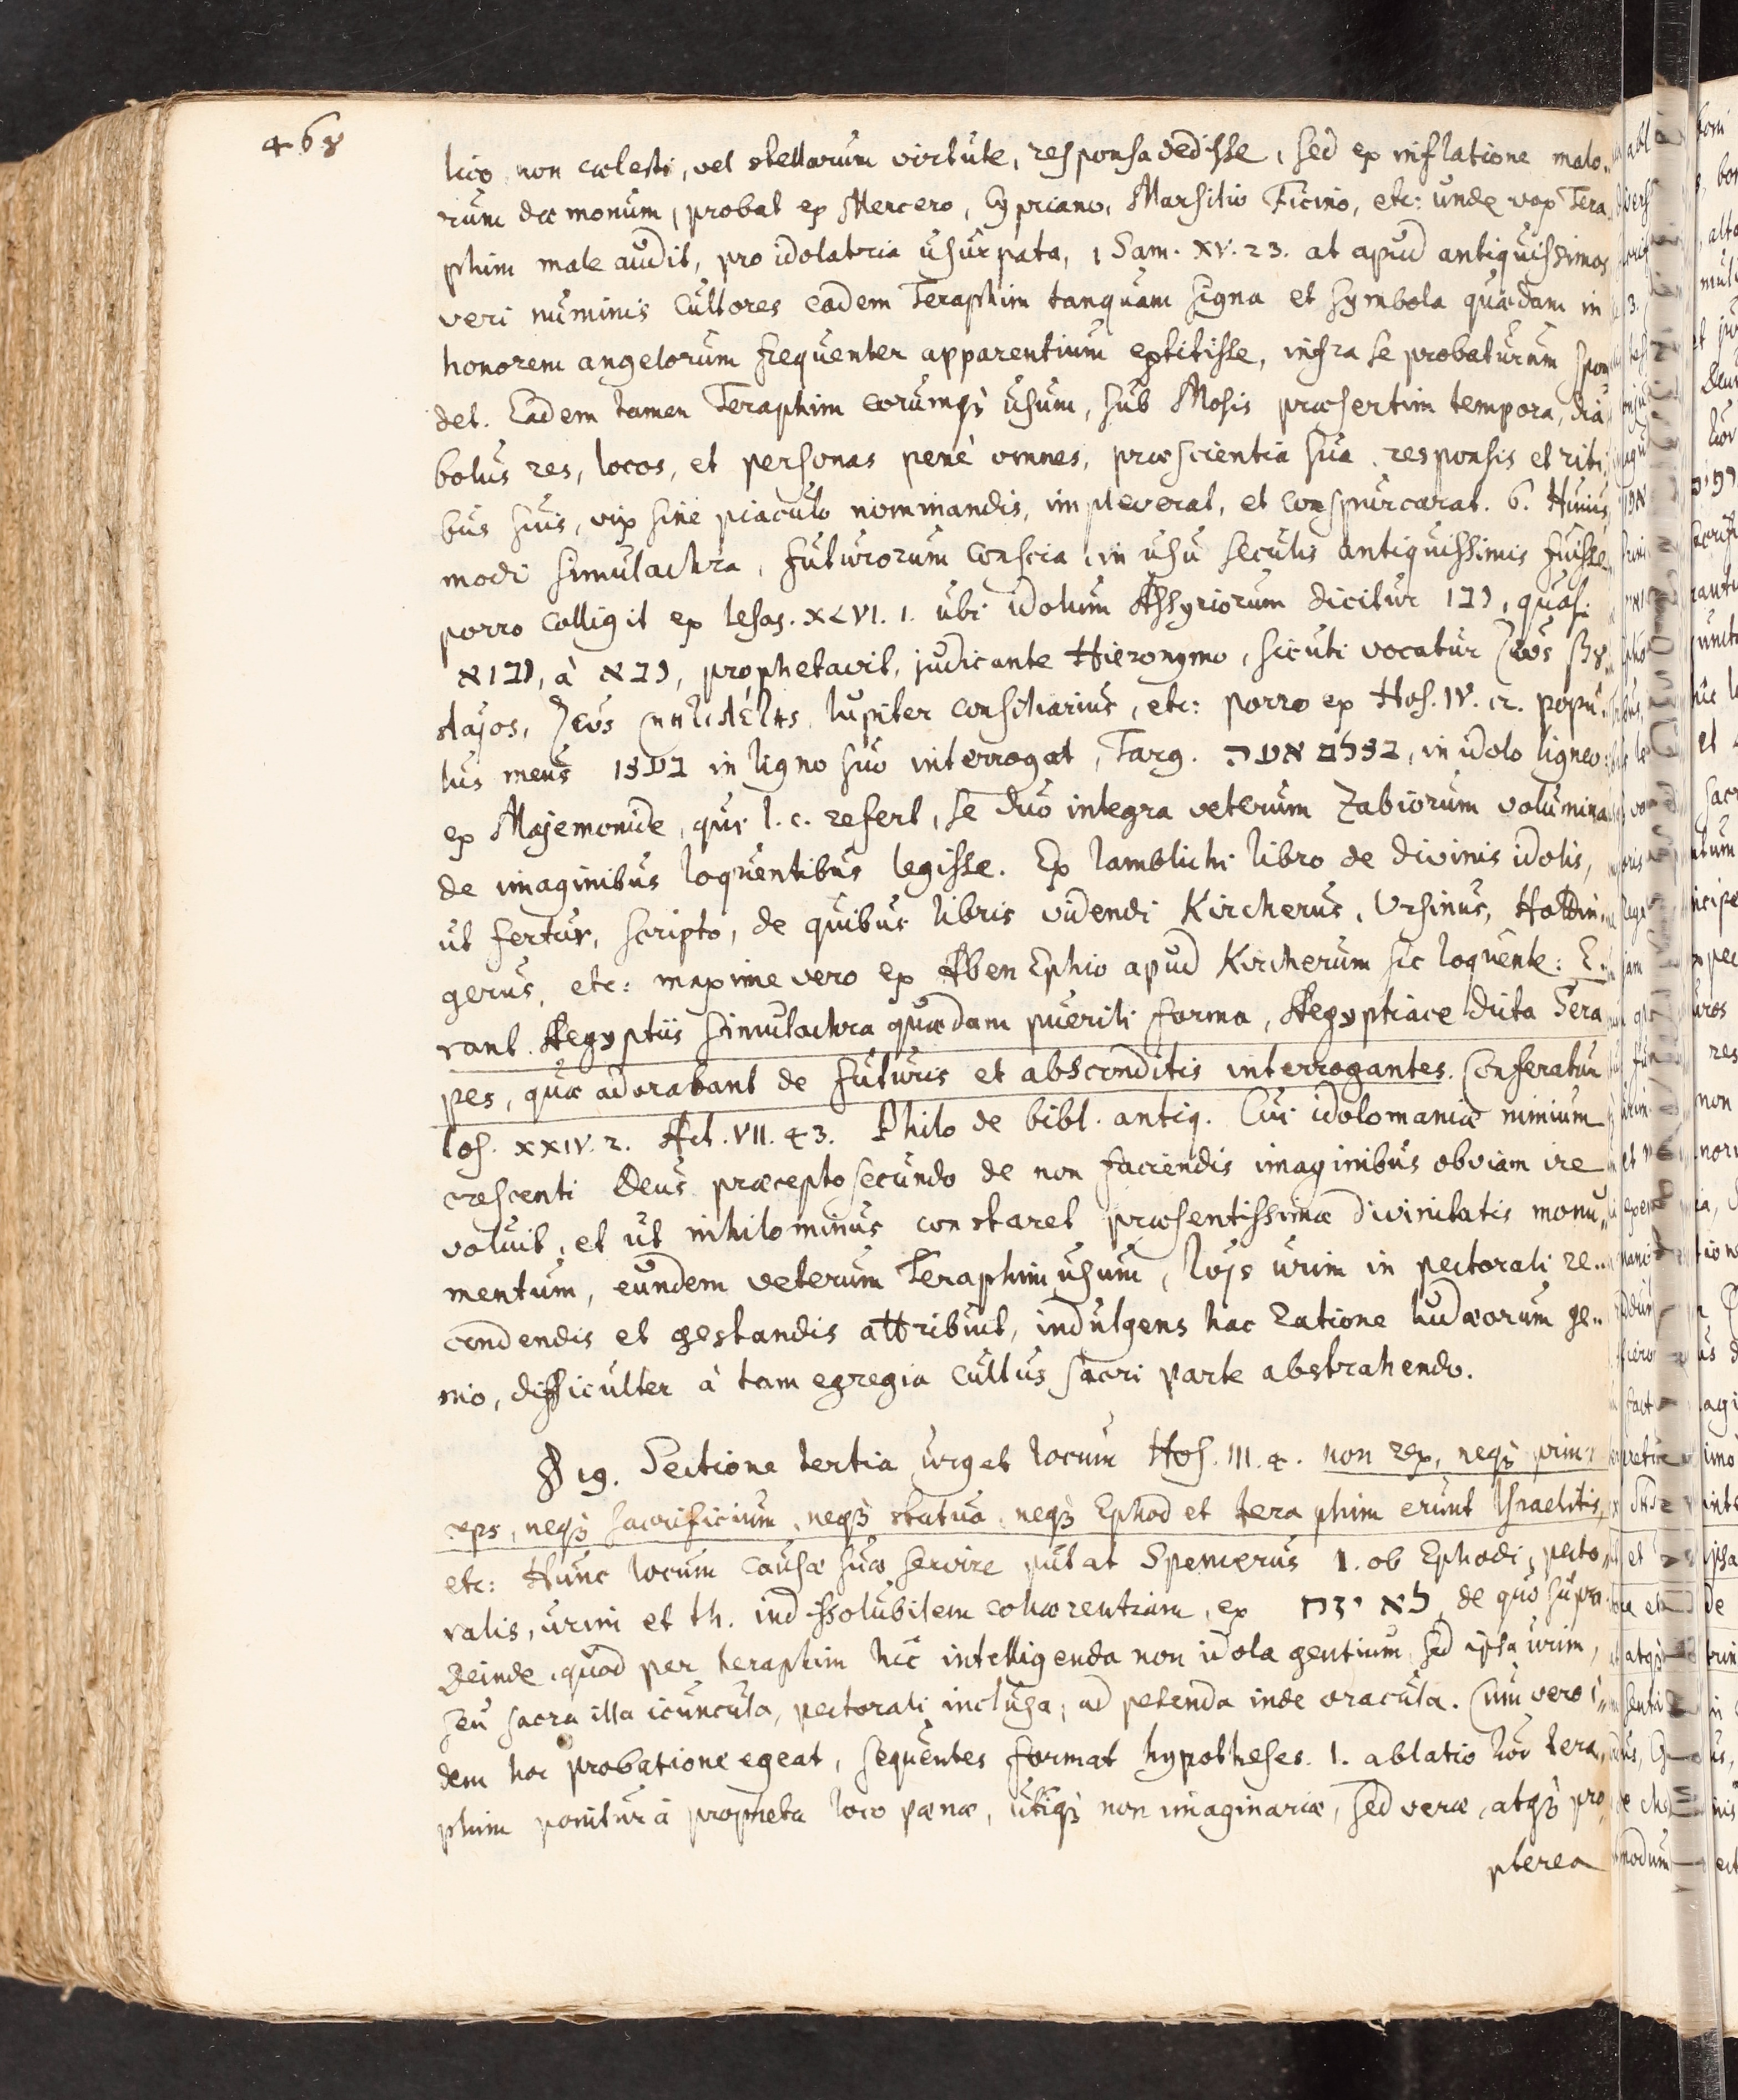 468
lico non cœlesti, vel stellarum virtute, responsa dedisse, sed ex inflatione malo-
rum dæmonum, probat ex Mercero, Cypriano, Marsilio Ficino, etc: unde vox Tera
phim male audit, pro idolatria usurpata, 1 Sam. XV. 23. at apud antiquissimos
veri numinis cultores eadem Teraphim tanquam signa et symbola quædam in
honorem angelorum frequenter apparentium extitisse, infra se probaturum spon
det. Eadem tamen Teraphim eorumqȝ usum, sub Mosis præsertim tempora, dia
bolus res, locos, et personas penè omnes, præscientia sua, responsis et riti
bus suis, vix sine piaculo nominandis, impleverat, et conspurcarat. 6. Huius
modi simulachra, futurorum conscia, in usu seculis antiquissimis fuisse
porro colligit ex Iesa. XLVI. 1. ubi idolum Assyriorum dicitur נבו, quasi
נבוא, à נבא, prophetavit, judicante Hieronymo, sicuti vocatur Ζευς βȣ
λαῖος, Ζευς μηλιχίης, Iupiter consiliarius, etc: porro ex Hos. IV. 12. popu-
lus meus בעצו in ligno suo interrogat, Targ. בצלם אעה, in idolo ligneo:
ex Majemonide, qui l. c. refert, se duo integra veterum Zabiorum volumina
de imaginibus loquentibus legisse. Ex Iamblichi libro de divinis idolis,
ut fertur, scripto, de quibus libris videndi Kircherus, Ursinus, Hottin-
gerus, etc: maxime vero ex Aben Ephio apud Kircherum sic loquente: E-
rant Aegyptiis simulachra quædam puerili forma, Aegyptiace dicta Tera
pes, quæ adorabant de futuris et absconditis interrogantes. Conferatur
Ios. XXIV. 2. Act. VII. 43. Philo de bibl. antiq. Cui idolomaniæ nimium
crescenti Deus præcepto secundo de non faciendis imaginibus obviam ire
voluit, et ut nihilominus constaret præsentissimæ divinitatis monu-
mentum, eundem veterum Teraphim usum, τοῖς urim in pectorali re-
condendis et gestandis attribuit, indulgens hac ratione Iudæorum ge-
nio, difficulter à tam egregia cultus sacri parte abstrahendo.
§ 19. Sectione tertia urget locum Hos. III. 4. non rex, neqȝ prin-
ceps, neqȝ sacrificium, neqȝ statua, neqȝ Ephod et teraphim erunt Israelitis,
etc: Hunc locum causæ suæ servire putat Spencerus 1. ob Ephodi, pecto-
ralis, urim et th. indissolubilem cohærentiam, ex לא יזח, de quo supra
Deinde, quod per teraphim hic intelligenda non idola gentium, sed ipsa urim,
seu sacra illa icuncula, pectorali inclusa, ad petenda inde oracula. Cum vero i-
dem hoc probatione egeat, sequentes format hypotheses. 1. ablatio τῶν tera
phim ponitur à propheta loco pœnæ, utiqȝ non imaginariæ, sed veræ, atqȝ pro
pterea